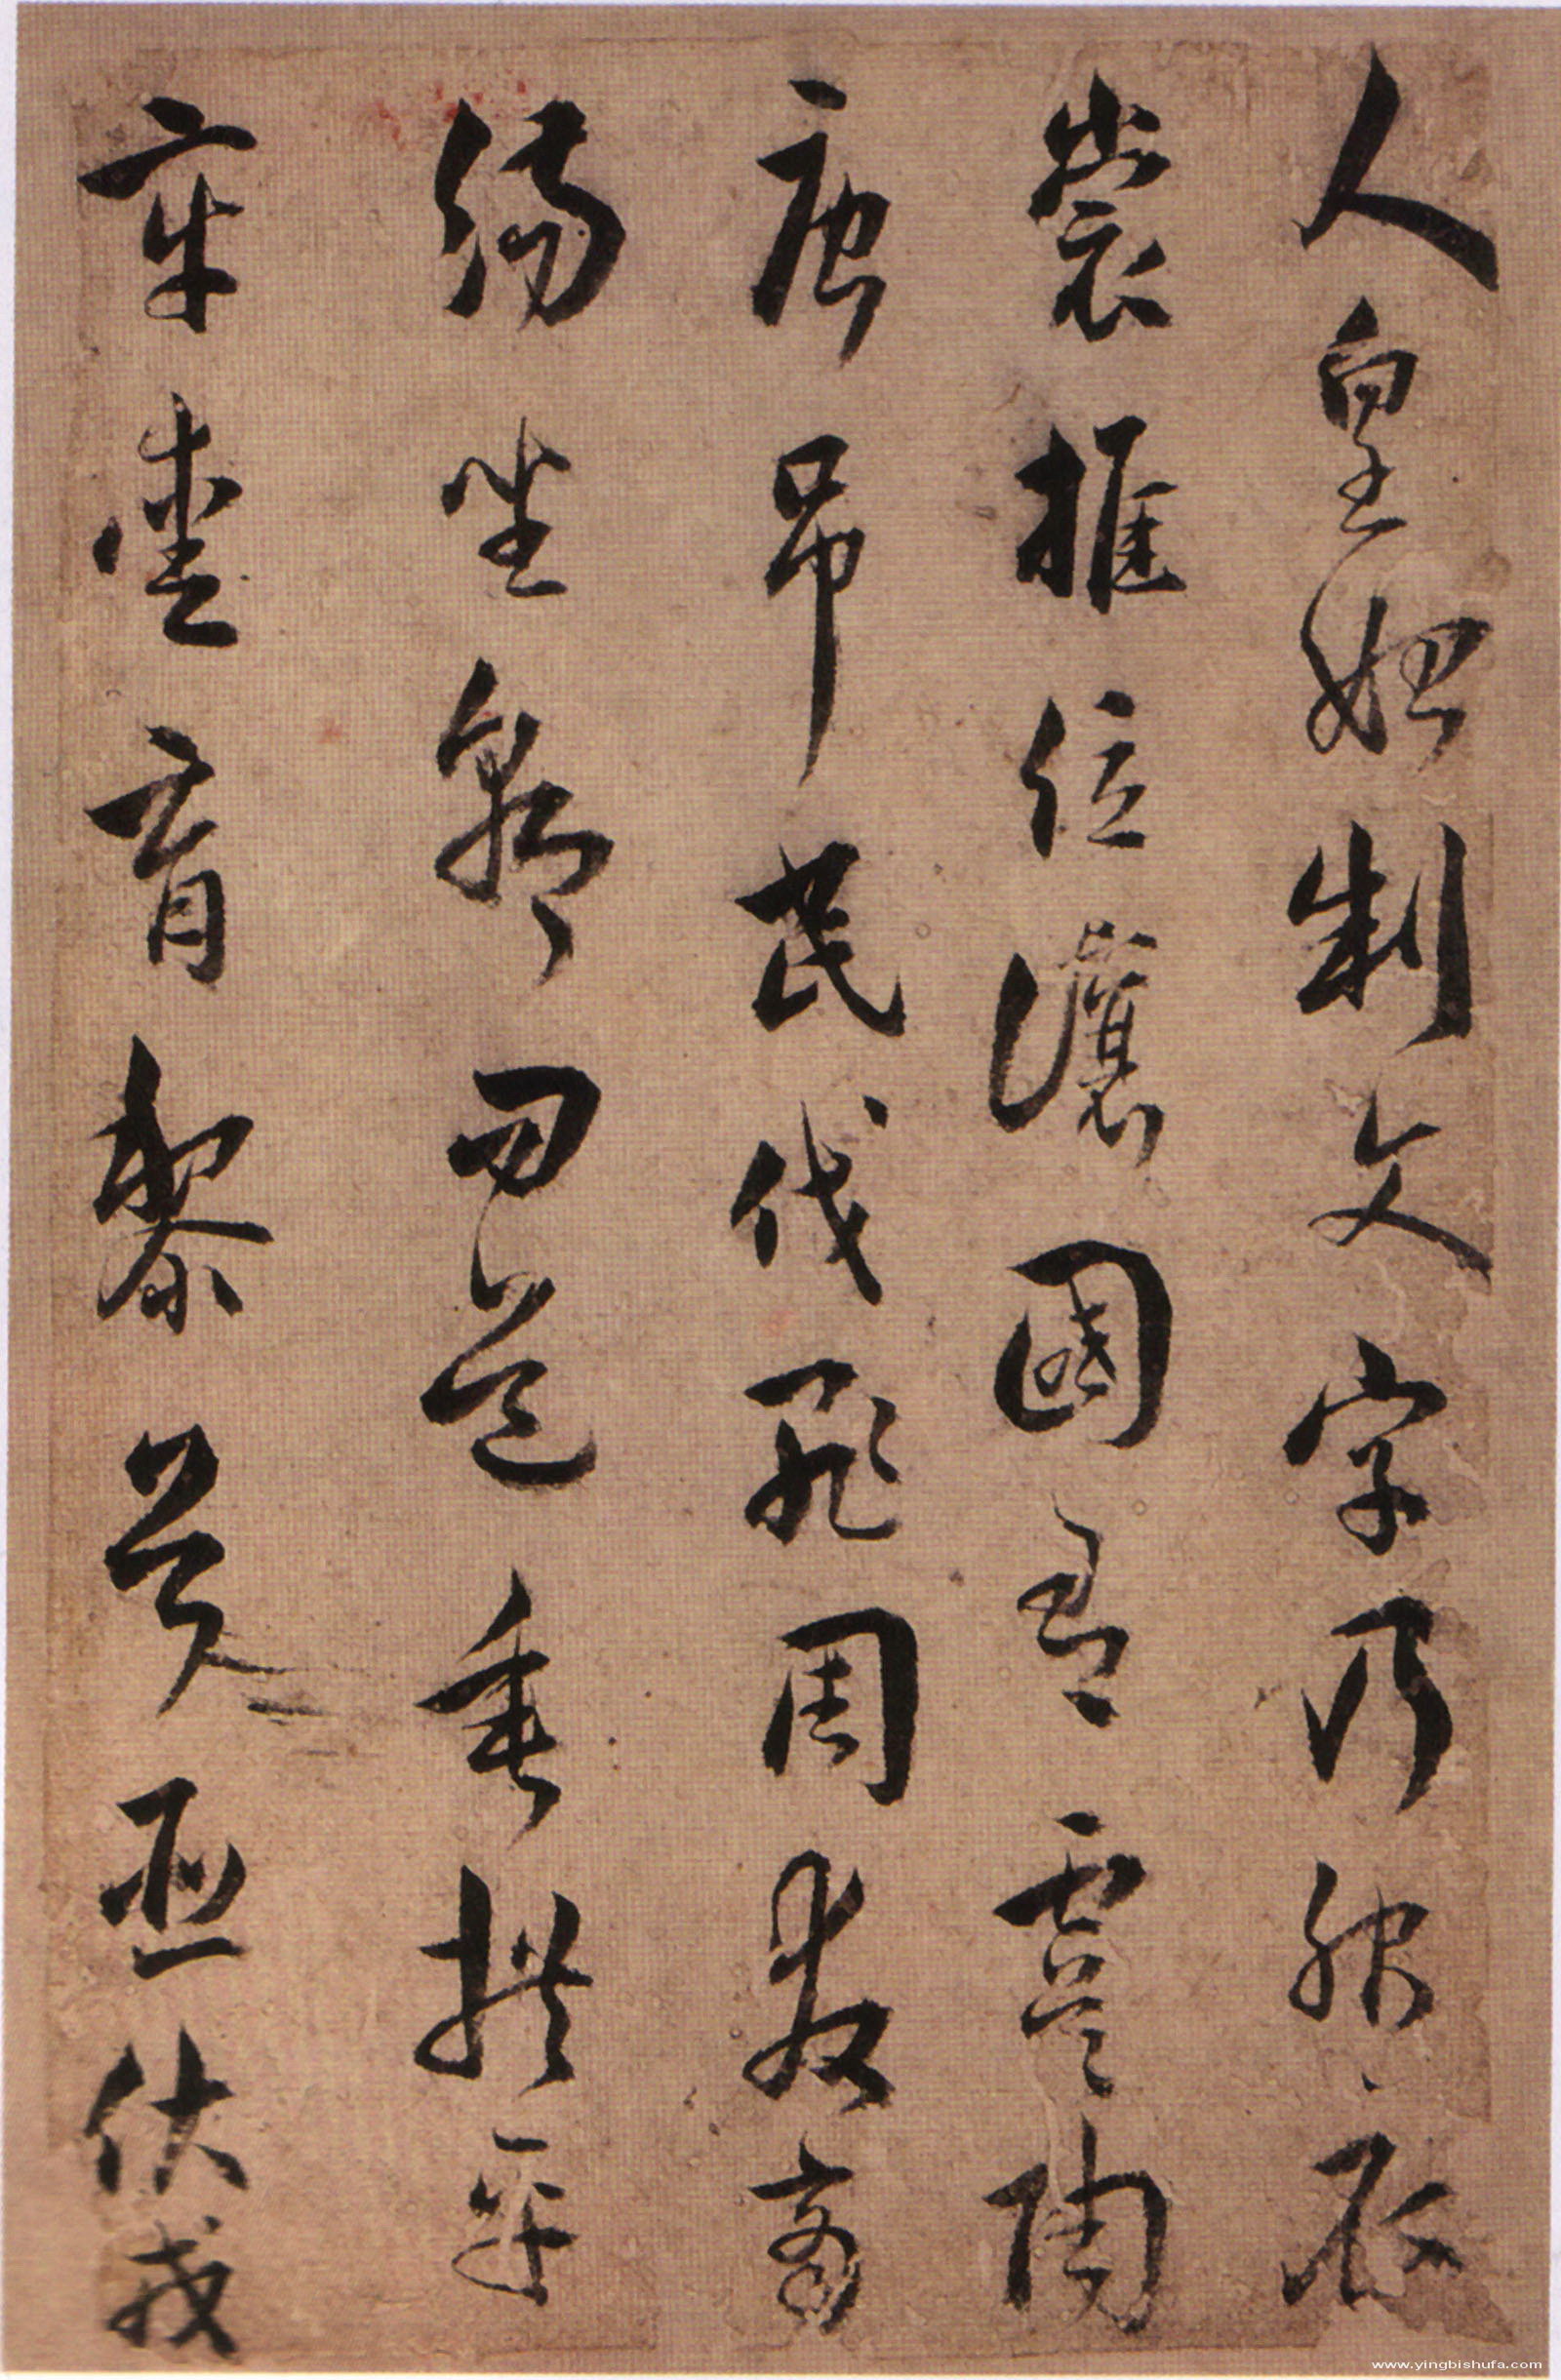 人皇始制文字乃服衣
裳推位讓國有虞陶
唐弔民伐罪周發商
湯坐朝問道垂拱平
章愛育黎首臣伏戎
www.yingbishufa.com